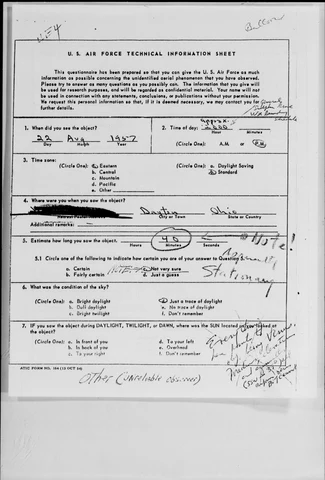 Balloon
U. S. AIR FORCE TECHNICAL INFORMATION SHEET
This questionnaire has been prepared so that you can give the U. S. Air Force as much
information as possible concerning the unidentified aerial phenomenon that you have observed.
Please try to answer as many questions as you possibly can. The information that you give will
be used for research purposes, and will be regarded as confidential material. Your name will
not be used in connection with any statements, conclusions, or publications without your permission.
We request this personal information so that, if it is deemed necessary, we may contact you for
further details.
1. When did you see the object?
22 Aug 1957
Day Month Year
2. Time of day: approx.
2000
Hour Minutes
(Circle One): A.M. or P.M.
3. Time zone:
(Circle One): a. Eastern
b. Central
c. Mountain
d. Pacific
e. Other
(Circle One): a. Daylight Saving
b. Standard
4. Where were you when you saw the object?
Dayton Ohio
Nearest Postal Address City or Town State or Country
Additional remarks:
5. Estimate how long you saw the object.
45
Hours Minutes Seconds
Note!
5.1 Circle one of the following to indicate how certain you are of your answer to Question 5.
a. Certain
b. Fairly certain
c. Not very sure
d. Just a guess
Stationary
6. What was the condition of the sky?
(Circle One): a. Bright daylight
b. Dull daylight
c. Bright twilight
d. Just a trace of daylight
e. No trace of daylight
f. Don't remember
7. IF you saw the object during DAYLIGHT, TWILIGHT, or DAWN, where was the SUN located as you looked at
the object?
(Circle One): a. In front of you
b. In back of you
c. To your right
d. To your left
e. Overhead
f. Don't remember
ATIC FORM NO. 164 (13 OCT 54)
Other (unreliable observer)